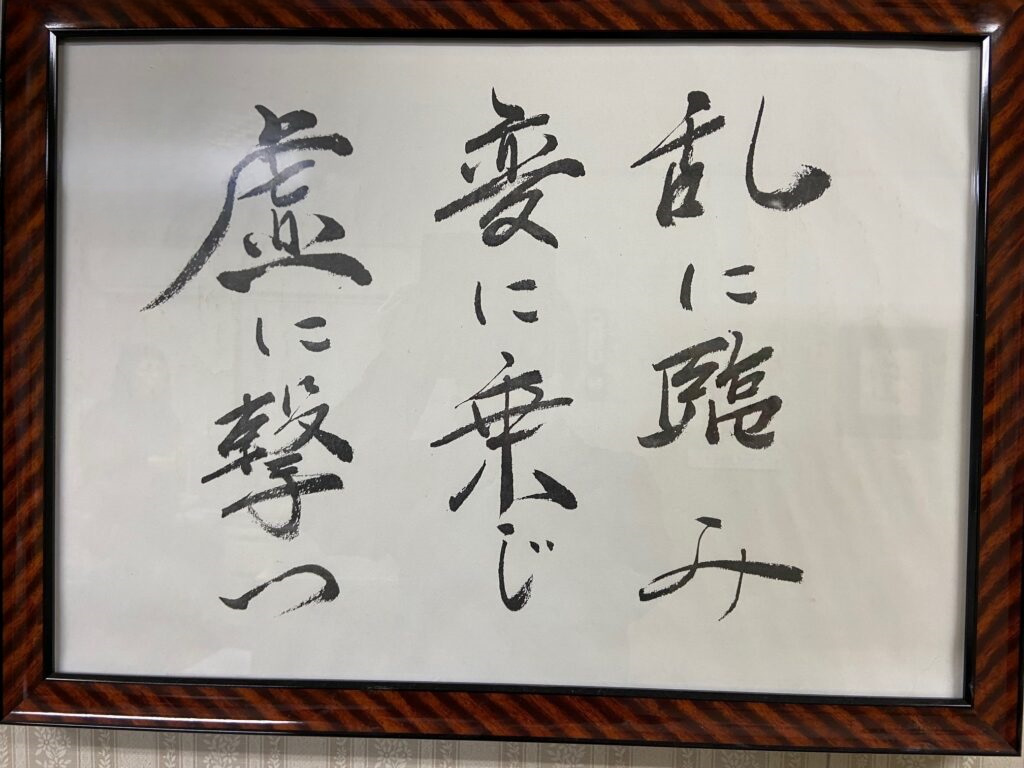 乱に臨み
変に乗じ
虚に撃つ